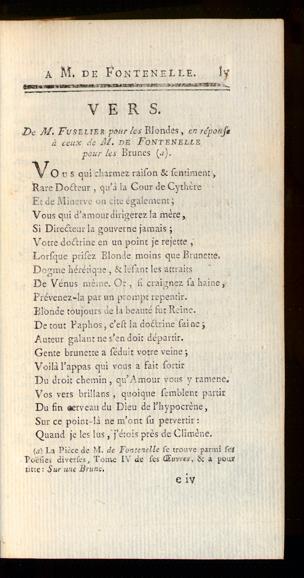 A M. DE FONTENELLE. lv
VERS.
De M. FUSELIER pour les Blondes, en réponse
à ceux de M. DE FONTENELLE
pour les Brunes (a).
Vous qui charmez raison & sentiment,
Rare Docteur, qu'à la Cour de Cythère
Et de Minerve on cite également;
Vous qui d'amour dirigerez la mère,
Si Directeur la gouverne jamais;
Votre doctrine en un point je rejette,
Lorsque prisez Blonde moins que Brunette.
Dogme hérétique, & lésant les attraits
De Vénus même. Or, si craignez sa haine,
Prévenez-la par un prompt repentir.
Blonde toujours de la beauté fut Reine.
De tout Paphos, c'est la doctrine saine;
Auteur galant ne s'en doit départir.
Gente brunette a séduit votre veine;
Voilà l'appas qui vous a fait sortir
Du droit chemin, qu'Amour vous y ramene.
Vos vers brillans, quoique semblent partir
Du fin cerveau du Dieu de l'hypocrène,
Sur ce point-là ne m'ont su pervertir:
Quand je les lus, j'étois près de Climène.
(a) La Pièce de M. de Fontenelle se trouve parmi ses
Poësies diverses, Tome IV de ses Œuvres, & a pour
titre: Sur une Brune.
e iv